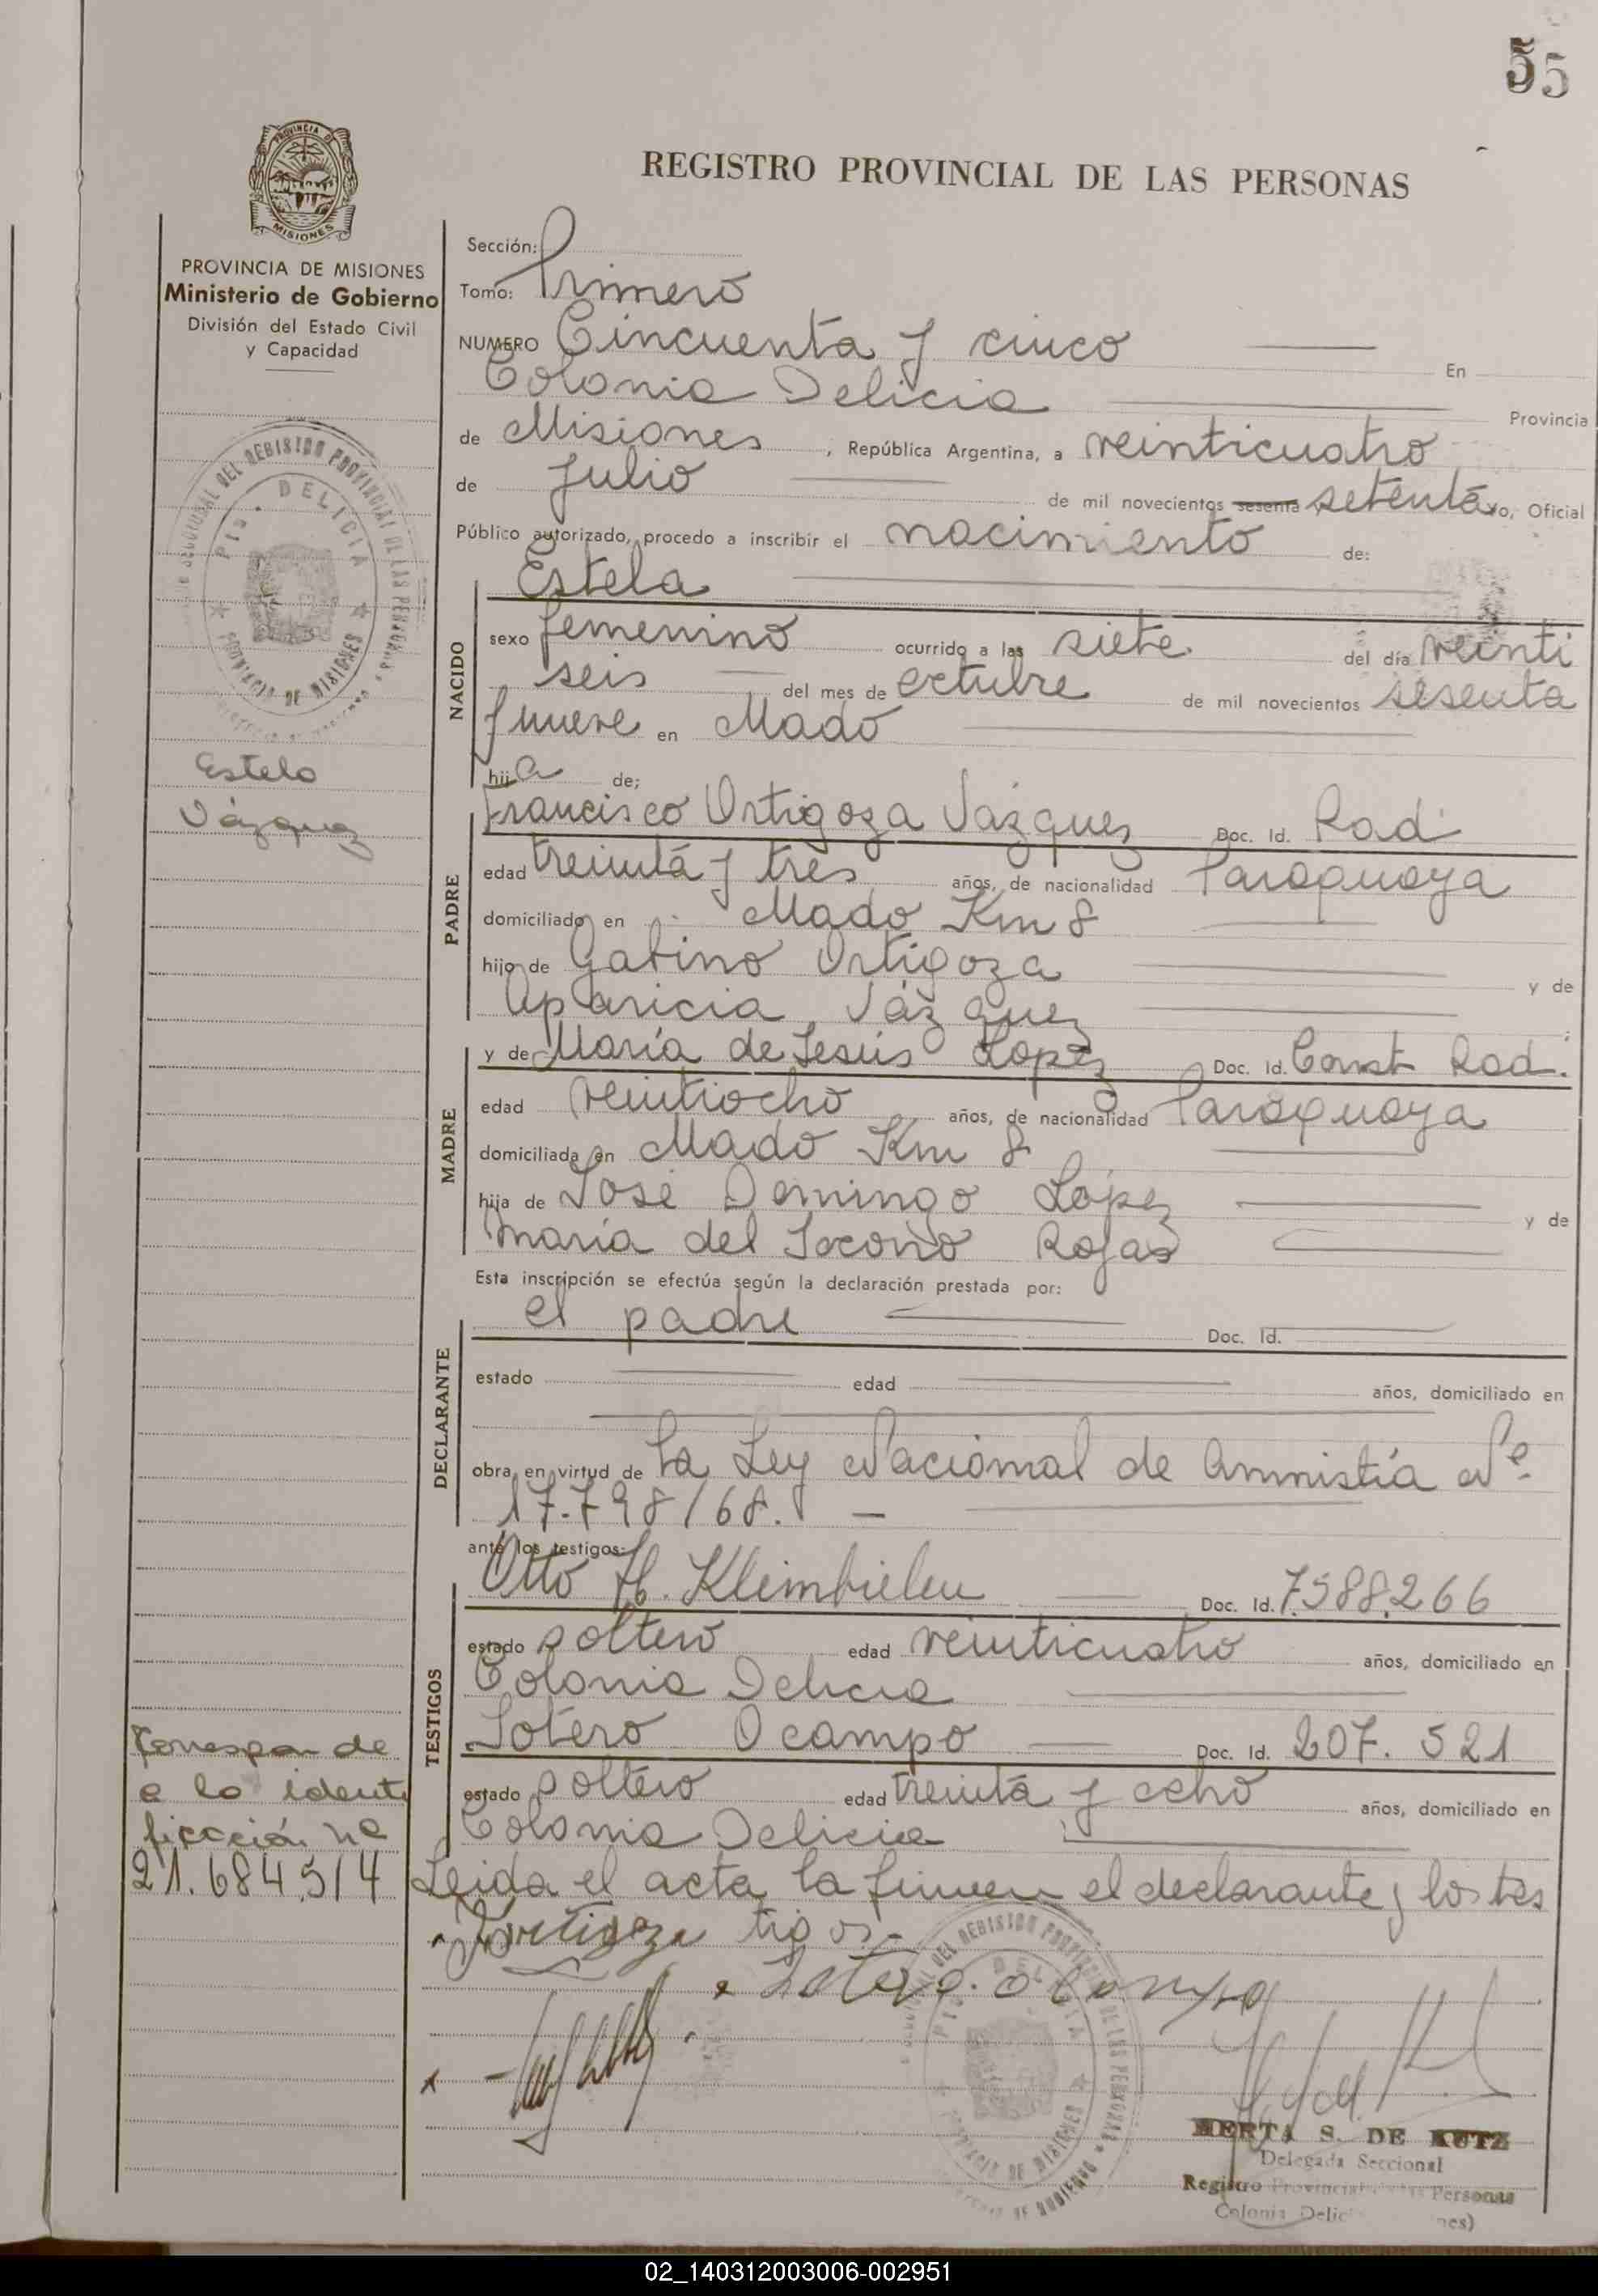 55
REGISTRO PROVINCIAL DE LAS PERSONAS
PROVINCIA DE MISIONES
PROVINCIA DE MISIONES
Ministerio de Gobierno
División del Estado Civil
y Capacidad
Sección:
Tomo: Primero
NUMERO Cincuenta y cinco En
Colonia Delicia Provincia
de Misiones, República Argentina, a veinticuatro
de Julio de mil novecientos sesenta setenta yo, Oficial
Público autorizado, procedo a inscribir el nacimiento de:
Estela
NACIDO
sexo femenino ocurrido a las siete del día veinti
seis del mes de octubre de mil novecientos sesenta
y nueve en Mado
hija de;
Estela
Vázquez
PADRE
Francisco Ortigoza Vázquez Doc. Id. Rad.
edad treinta y tres años, de nacionalidad Paraguaya
domiciliado en Mado Km 8
hijo de Gabino Ortigoza y de
Aparicia Vázquez
MADRE
y de María de Jesús Lopez Doc. Id. Const Rad.
edad veintiocho años, de nacionalidad Paraguaya
domiciliada en Mado Km 8
hija de José Domingo López y de
María del Socorro Rojas
Esta inscripción se efectúa según la declaración prestada por:
DECLARANTE
el padre Doc. Id.
estado edad años, domiciliado en
obra en virtud de la Ley Nacional de Amnistía Nº
17.798/68. –
ante los testigos:
TESTIGOS
Otto H. Kleimbielen Doc. Id. 7.588.266
estado soltero edad veinticuatro años, domiciliado en
Colonia Delicia
Sotero Ocampo Doc. Id. 207.521
estado soltero edad treinta y ocho años, domiciliado en
Colonia Delicia
Corresponde
a la identi
ficación nº
21.684.514
Leida el acta la firmen el declarante y los tes
tigos.-
Sotero. ocampo
HERTA S. DE KUTZ
Delegada Seccional
Registro Provincial de las Personas
Colonia Delicia
02_140312003006-002951